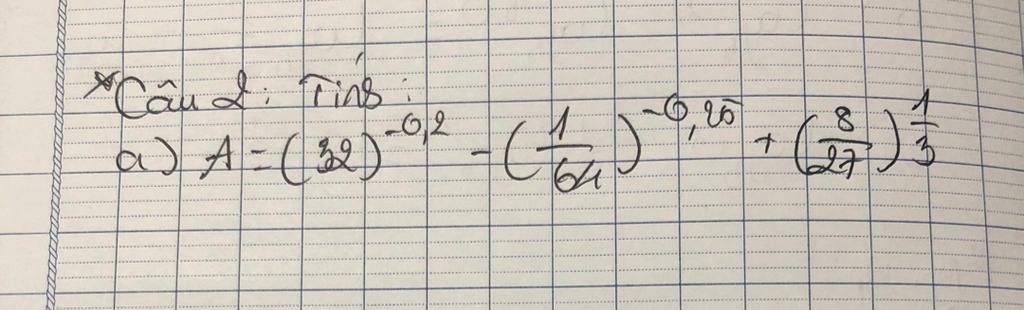 *Câu 2: Tính:
a) A = (32)^{-0,2} - (\frac{1}{64})^{-0,25} + (\frac{8}{27})^{\frac{1}{3}}